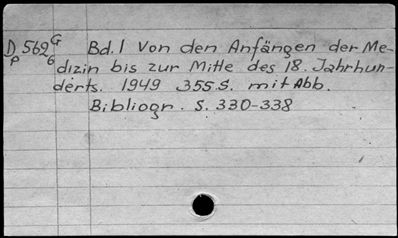 D 562 G Bd. 1 Von den Anfängen der Me-
p 6 dizin bis zur Mitte des 18. Jahrhun-
derts. 1949 355 S. mit Abb.
Bibliogr. S. 330-338